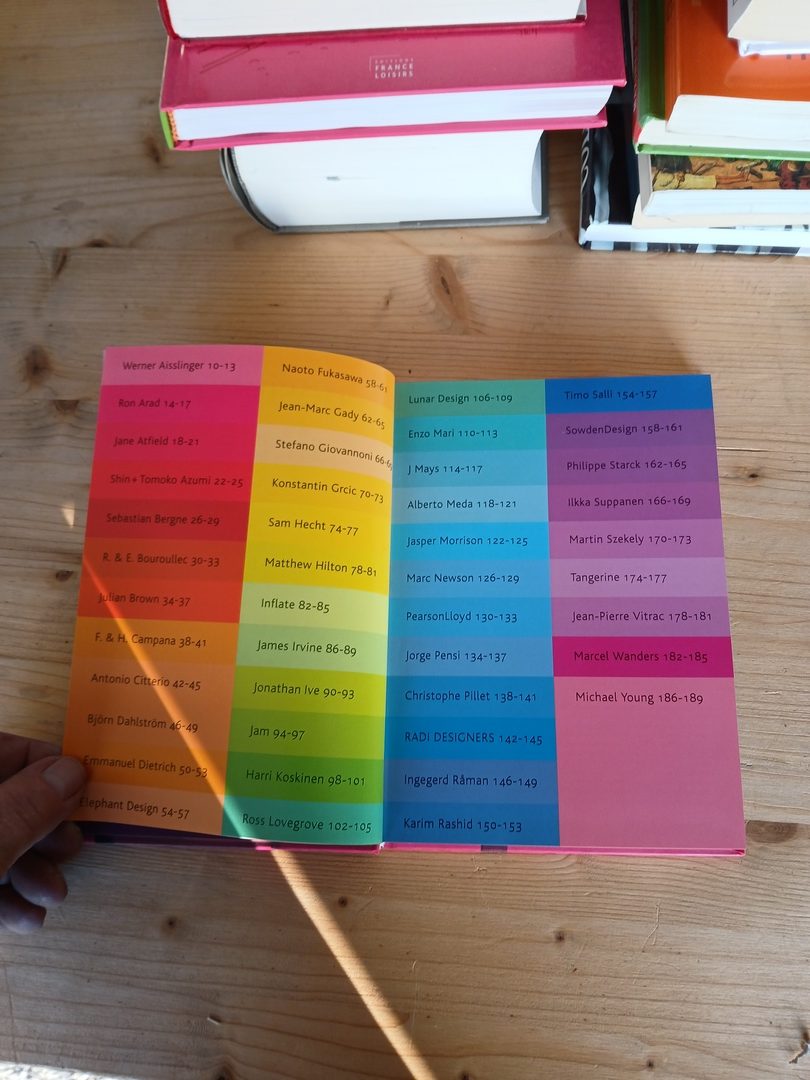 EDITIONS
FRANCE
LOISIRS
Werner Aisslinger 10-13
Ron Arad 14-17
Jane Atfield 18-21
Shin + Tomoko Azumi 22-25
Sebastian Bergne 26-29
R. & E. Bouroullec 30-33
Julian Brown 34-37
F. & H. Campana 38-41
Antonio Citterio 42-45
Björn Dahlström 46-49
Emmanuel Dietrich 50-53
Elephant Design 54-57
Naoto Fukasawa 58-61
Jean-Marc Gady 62-65
Stefano Giovannoni
Konstantin Grcic 70-73
Sam Hecht 74-77
Matthew Hilton 78-81
Inflate 82-85
James Irvine 86-89
Jonathan Ive 90-93
Jam 94-97
Harri Koskinen 98-101
Ross Lovegrove 102-105
Lunar Design 106-109
Enzo Mari 110-113
J Mays 114-117
Alberto Meda 118-121
Jasper Morrison 122-125
Marc Newson 126-129
PearsonLloyd 130-133
Jorge Pensi 134-137
Christophe Pillet 138-141
RADI DESIGNERS 142-145
Ingegerd Råman 146-149
Karim Rashid 150-153
Timo Salli 154-157
SowdenDesign 158-161
Philippe Starck 162-165
Ilkka Suppanen 166-169
Martin Szekely 170-173
Tangerine 174-177
Jean-Pierre Vitrac 178-181
Marcel Wanders 182-185
Michael Young 186-189